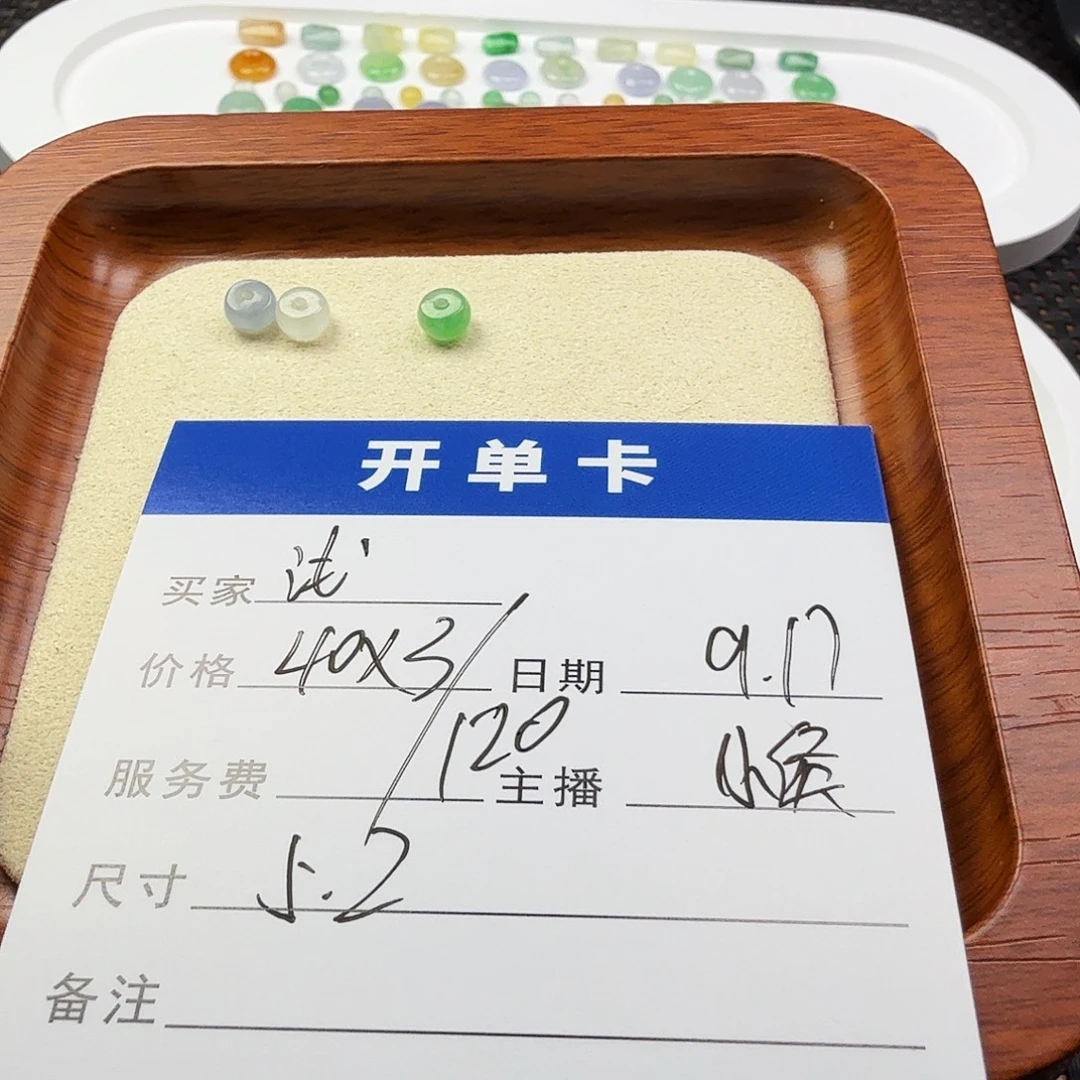 开单卡
买家
价格 40x3/120 日期 9.17
服务费 主播 小侯
尺寸 5.2
备注